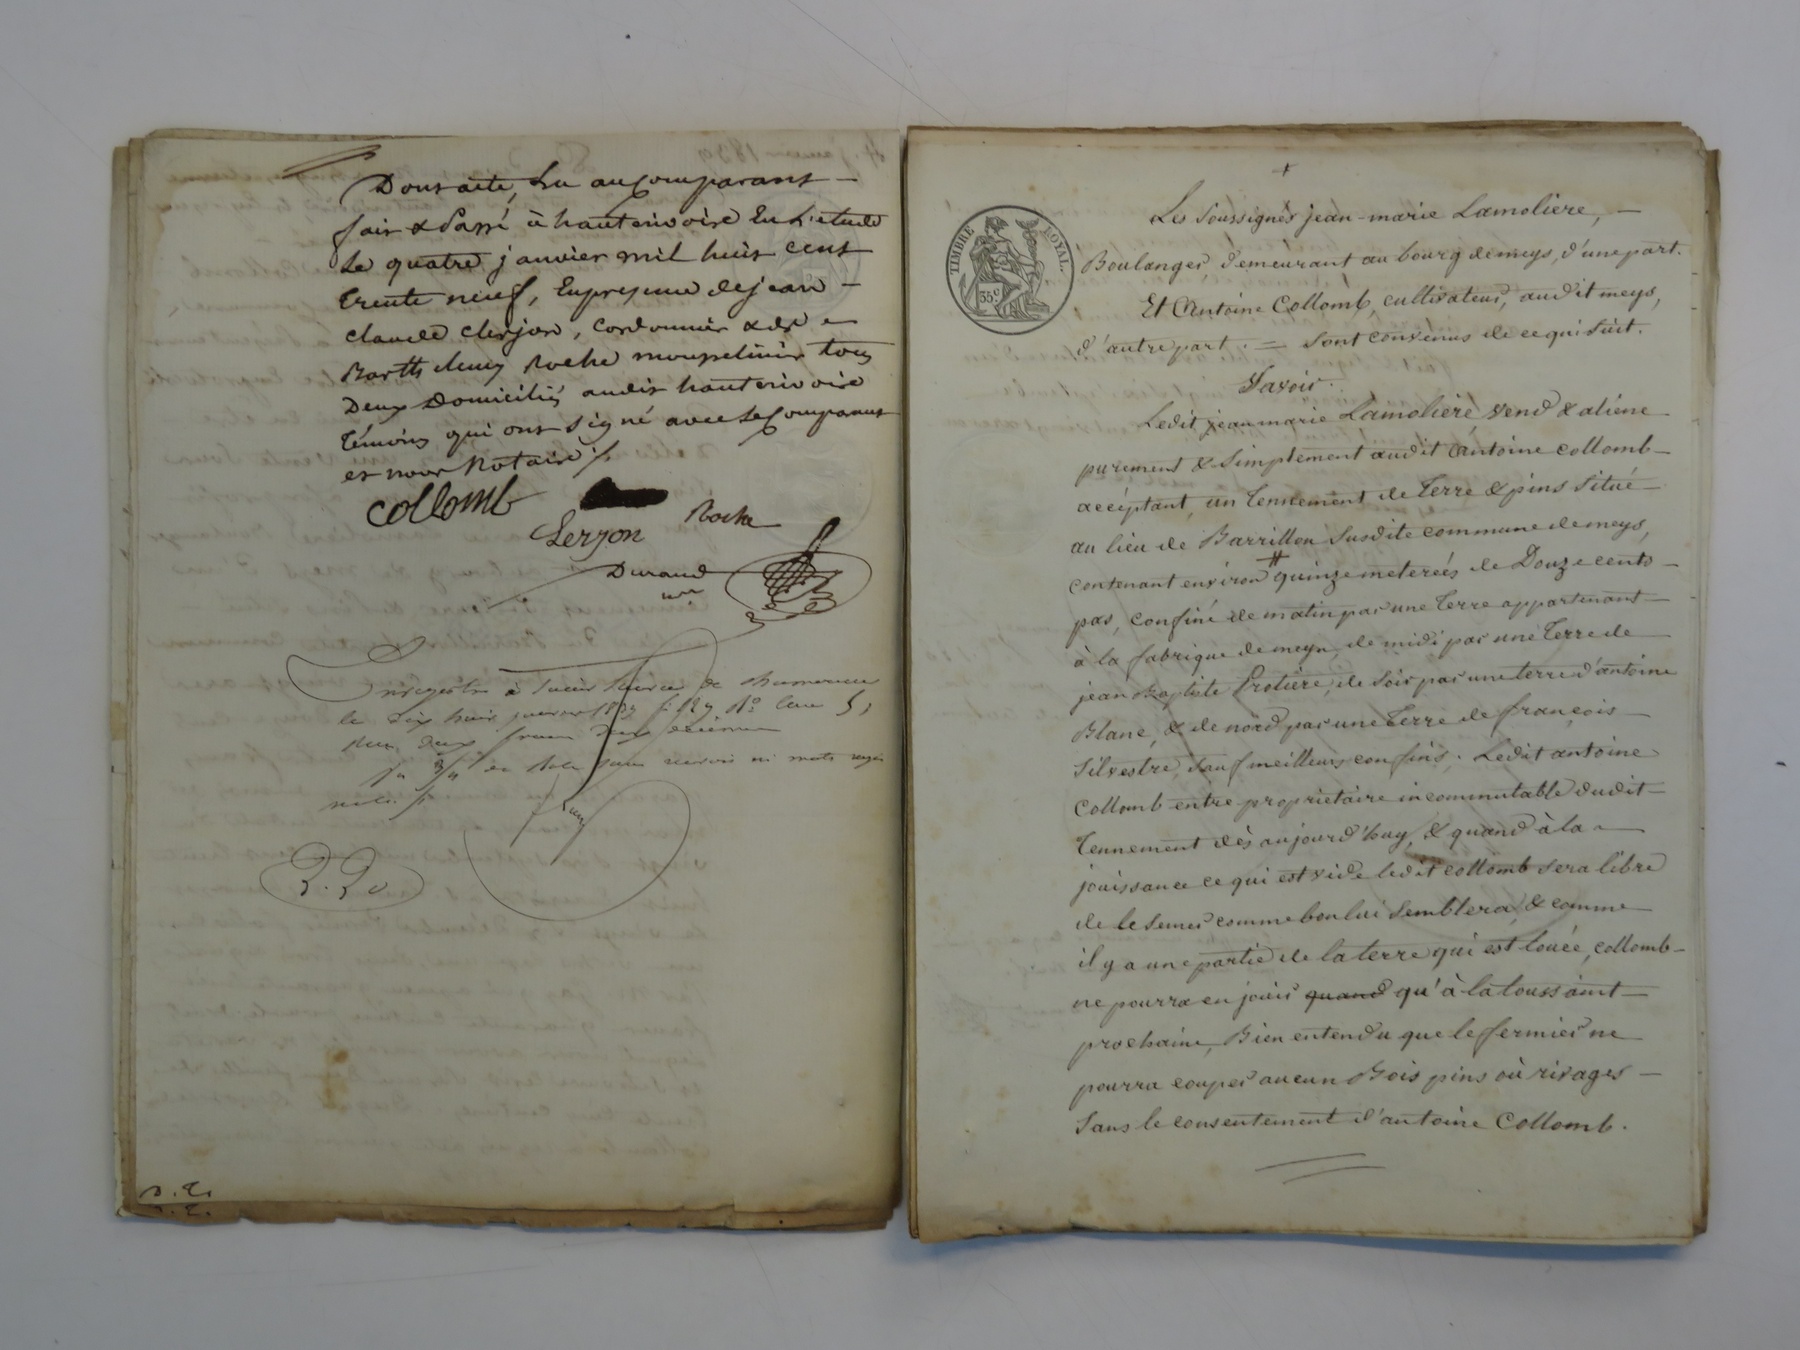 Dont acte, Lu au Comparant —
fait & Passé à hauterivoire En L'étude
Le quatre janvier mil huit cent
trente neuf, En presence de jean —
claude clerjon, Cordonnier & de
Barthelemy Roche tous
Deux Domiciliés audit hauterivoire
témoins qui ont signé avec le Comparant
et nous Notaire ./.
collomb
Roche
Lerjon
Durand
nre
Enregistré à
le dix huit janvier 1839
deux francs deux décimes
2.20
4. janvier 1839
TIMBRE ROYAL.
35c
Les Soussignés jean-marie Lamolière, —
Boulanger, demeurant au bourg de meys, d'une part.
Et Antoine Collomb, cultivateur, audit meys,
d'autre part. = Sont convenus de ce qui Suit.
Savoir.
Ledit jean marie Lamolière, vend & aliène
purement & simplement audit Antoine collomb —
accéptant, un tennement de terre & pins Situé —
au lieu de Barrillon Susdite commune de meys,
contenant environ # quinze meterées de Douze cents —
pas, confiné de matin par une terre appartenant —
à la fabrique de meys, de midi par une terre de
jean Baptiste Protière, de soir par une terre d'antoine
Blanc, & de nord par une terre de françois
Silvestre, sauf meilleurs confins. Ledit antoine
Collomb entre propriétaire incommutable dudit —
tennement dès aujourd'huy, & quand à la —
jouissance ce qui est vide ledit collomb sera libre
de le semer comme bon lui Semblera, & comme
il y a une partie de la terre qui est louée, collomb —
ne pourra en jouir quand qu'à la toussaint —
prochaine, Bien entendu que le fermier ne
pourra couper aucun Bois pins où rivages —
Sans le consentement d'antoine Collomb.